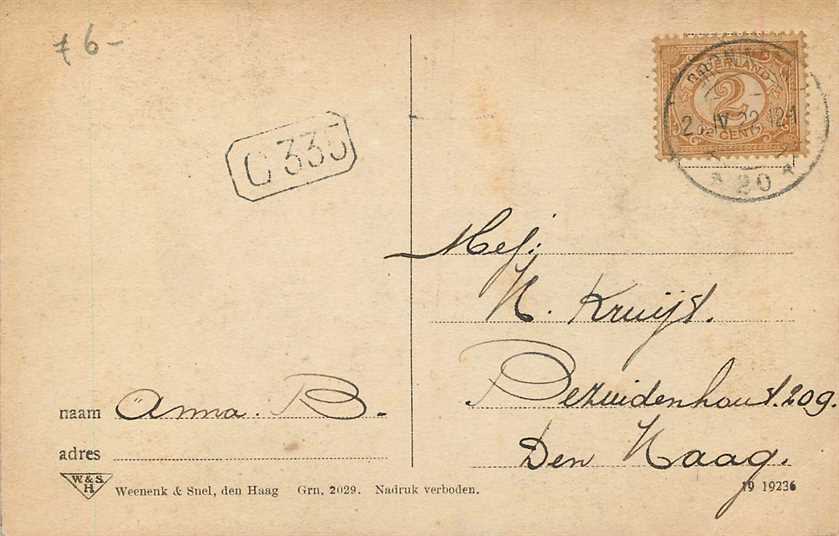 f 6-
NEDERLAND
2
CENT
20
C 335
Mej:
N. Kruijt.
Bezuidenhout. 209.
Den Haag.
naam Anna. B.
adres
W. & S.
H
Weenenk & Snel, den Haag Grn, 2029. Nadruk verboden.
19 19236